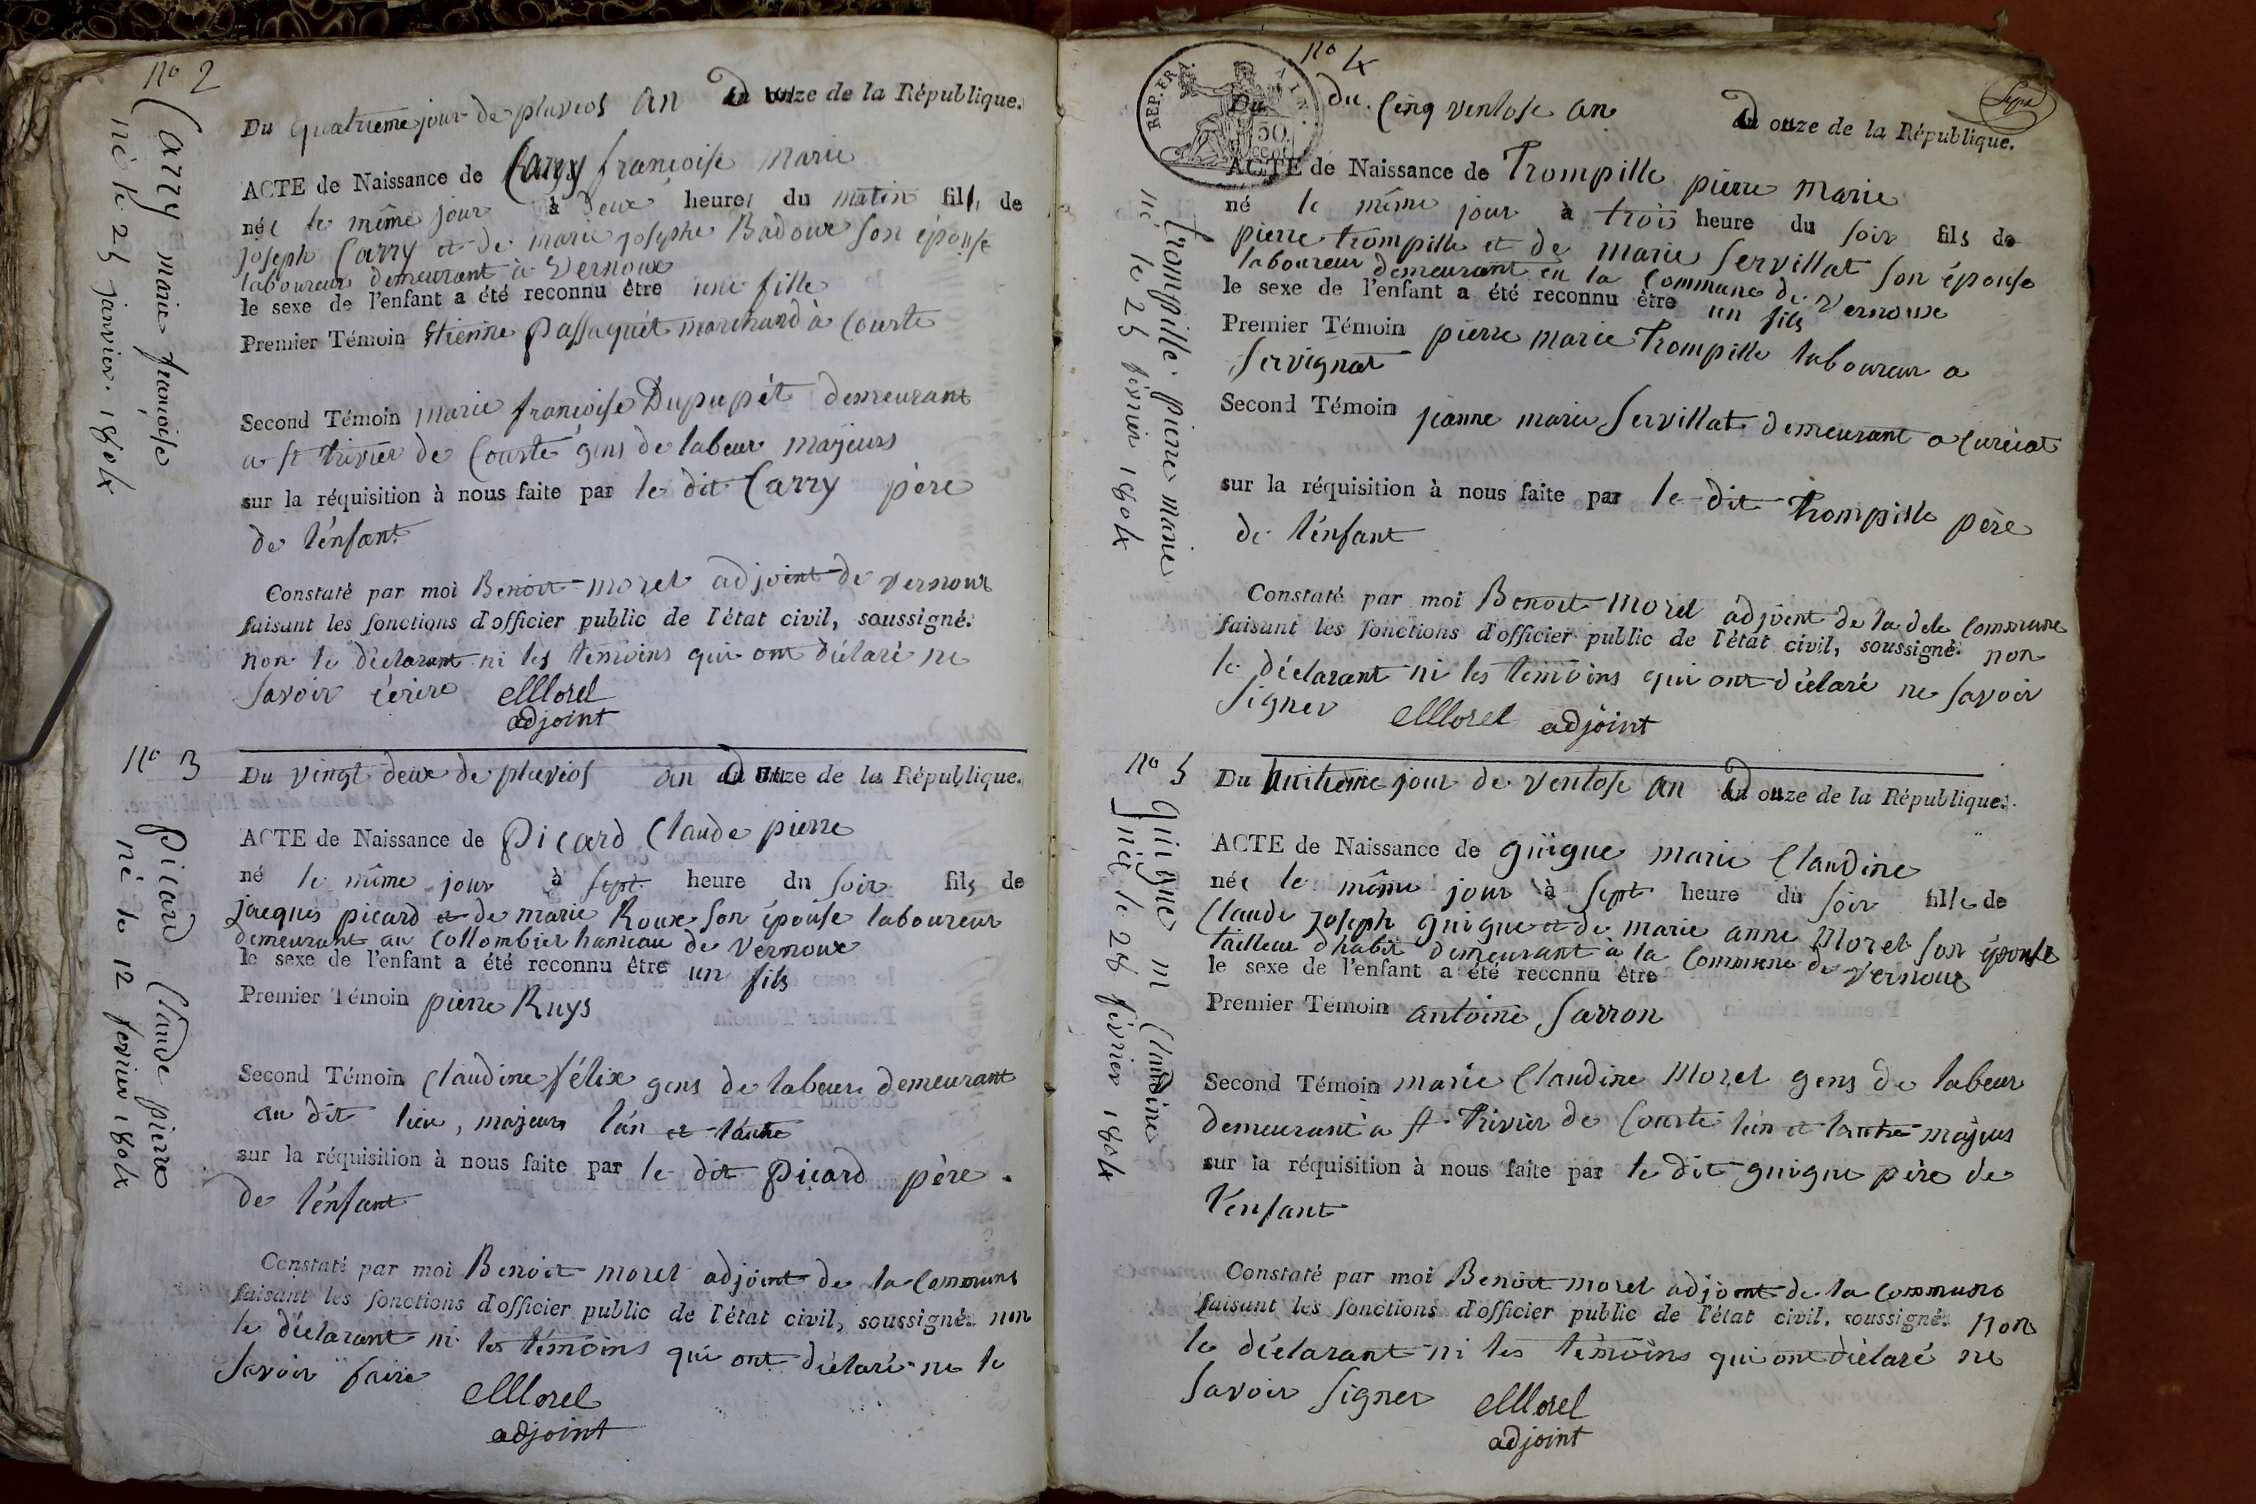 no 2
Du quatrieme jour de pluvios an onze de la République.
ACTE de Naissance de Carry françoise marie
née le même jour à deux heures du matin fille de
joseph Carry et de marie josephe Badoux son épouse
laboureur demeurant à Vernoux
le sexe de l'enfant a été reconnu être une fille
Premier Témoin Etienne Passaquét marchand à Courte
Second Témoin marie françoise Dupupét demeurant
a st trivier de Courte gens de labeur majeurs
sur la réquisition à nous faite par le dit Carry père
de l'énfant
Constaté par moi Benoit morel adjoint de vernoux
faisant les fonctions d'officier public de l'état civil, soussigné.
non le déclarant ni les témoins qui ont déclaré ne
savoir écrire Morel
adjoint
Carry marie françoise
né le 25 janvier 1804
no 3
Du vingt deux de pluvios an onze de la République.
ACTE de Naissance de Picard Claude pierre
né le même jour à sept heure du soir fils de
jacques picard et de marie Roux son épouse laboureur
demeurant au Collombier hameau de Vernoux
le sexe de l'enfant a été reconnu être un fils
Premier Témoin pierre Ruys
Second Témoin Claudine félix gens de labeur demeurant
au dit lieu, majeurs l'un et l'autre
sur la réquisition à nous faite par le dit Picard père
de l'énfant
Constaté par moi Benoit morel adjoint de la Commune
faisant les fonctions d'officier public de l'état civil, soussigné. non
le déclarant ni les témoins qui ont déclaré ne le
savoir faire Morel
adjoint
picard Claude pierre
né le 12 fevrier 1804
no 4
REP. FRA. AIN.
50
cent
Du du Cinq ventose an onze de la République.
ACTE de Naissance de Trompille pierre marie
né le même jour à trois heure du soir fils de
pierre trompille et de marie Servillat son épouse
laboureur demeurant en la Commune de Vernoux
le sexe de l'enfant a été reconnu être un fils
Premier Témoin pierre marie Trompille laboureur a
Servignat
Second Témoin jeanne marie Servillat demeurant a Curciat
sur la réquisition à nous faite par le dit Trompille père
de l'énfant
Constaté par moi Benoit Morel adjoint de la dete Commune
faisant les fonctions d'officier public de l'état civil, soussigné. non
le déclarant ni les témoins qui ont déclaré ne savoir
signer Morel adjoint
trompille pierre marie
né le 25 février 1804
no 5
Du huitième jour de ventose an onze de la République.
ACTE de Naissance de guigue marie Claudine
née le même jour à sept heure du soir fille de
Claude joseph guigue et de marie anne Morel son épouse
tailleur d'habit demeurant à la Commune de Vernoux
le sexe de l'enfant a été reconnu être
Premier Témoin antoine Sarron
Second Témoin marie Claudine Morel gens de labeur
demeurant a st Trivier de Courte l'un et l'autre majeurs
sur la réquisition à nous faite par le dit guigue père de
l'enfant
Constaté par moi Benoit morel adjoint de la commune
faisant les fonctions d'officier public de l'état civil, soussigné. non
le déclarant ni les témoins qui ont déclaré ne
savoir signer Morel
adjoint
guigue m Claudine
née le 28 février 1804